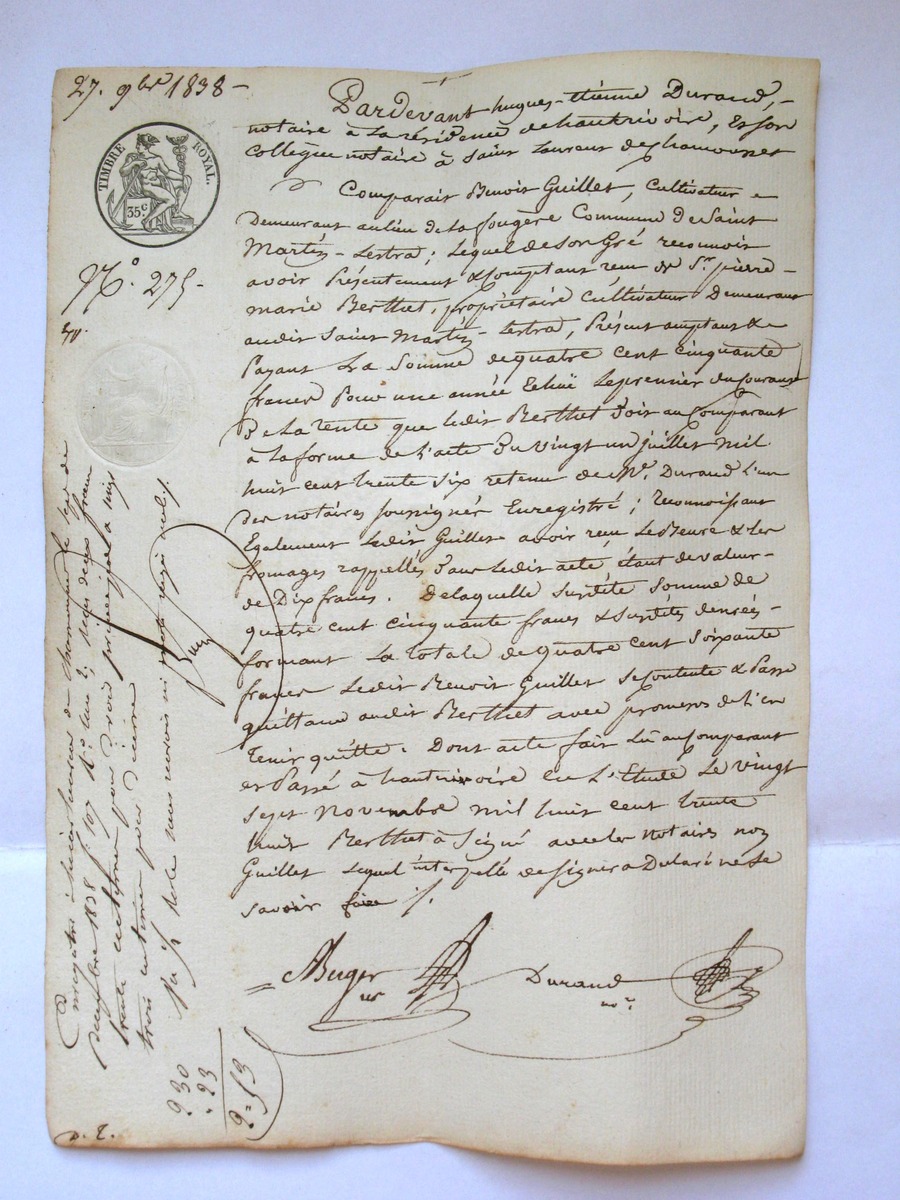 27. 9bre 1838 -
TIMBRE ROYAL.
35 c
N.o 275 -
Pardevant hugues-étienne Durand, -
notaire à la résidence de hauterivoire, et son
collegue notaire à saint Laurent de chamousset
Comparait Benoit Guillet, cultivateur
Demeurant au lieu de la fougère Commune de Saint
Martin-Lestra; lequel de son Gré reconnoit
avoir Présentement & Comptant reçu de Sr. pierre-
marie Berthet, propriétaire cultivateur Demeurant
audit Saint Martin-Lestra, Présent acceptant &
Payant La Somme de quatre cent cinquante
francs Pour une année Echuë le premier du Courant
De la rente que ledit Berthet Doit au Comparant
à la forme de l'acte Du vingt un juillet mil
huit cent trente six retenu de Me. Durand l'un
des notaires soussignés Enregistré; reconnoissant
Egalement ledit Guillet avoir reçu le Beurre & les
fromages rappellés Dans ledit acte étant de valeur -
de Dix francs. Delaquelle susdite somme de
quatre cent cinquante francs & susdites denrées -
formant La totale de quatre cent soixante
francs ledit Benoit Guillet se contente & Passe
quittance audit Berthet avec promesse de l'en
tenir quitte. Dont acte fait Lû au Comparant
et Passé à hauterivoire en L'Etude Le vingt
sept novembre mil huit cent trente
huit Berthet à Signé avec les notaires non
Guillet lequel interpellé de signer a Declaré ne le
savoir faire ./.
Durand
no.re
Enregistré à
décembre 1838 f. 107 R.o Case 2; reçu deux francs
trente centimes pour droit principal &
trois centimes pour décime
2 30
. 23
2 = 53